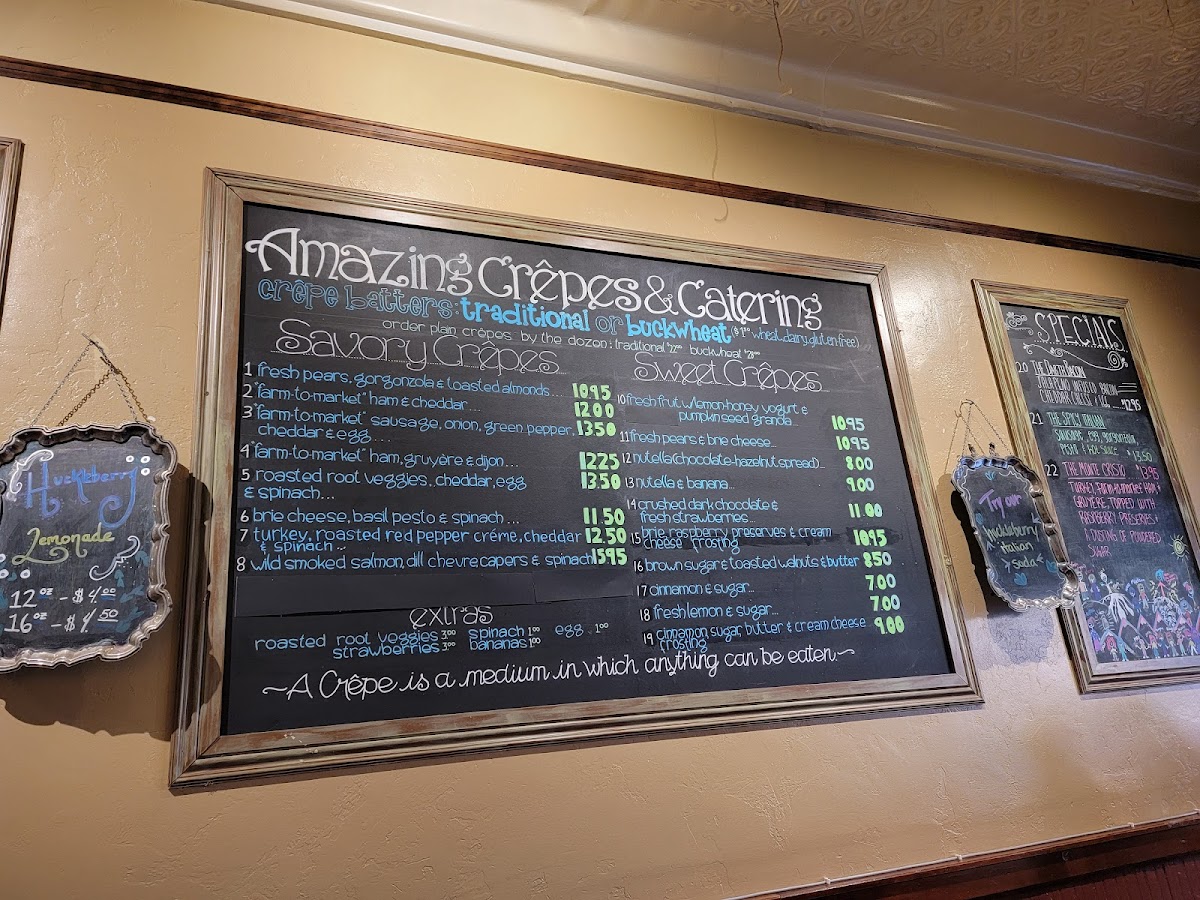 Huckleberry
Lemonade
12 oz - $4.00
16 oz - $4.50
Amazing Crêpes & Catering
crêpe batters: traditional or buckwheat ($1.00 wheat, dairy, gluten-free)
order plain crêpes by the dozen: traditional buckwheat
Savory Crêpes
1 fresh pears, gorgonzola & toasted almonds... 10.95
2 "farm-to-market" ham & cheddar... 12.00
3 "farm-to-market" sausage, onion, green pepper, 13.50
cheddar & egg....
4 "farm-to-market" ham, gruyère & dijon... 12.25
5 roasted root veggies, cheddar, egg 13.50
& spinach...
6 brie cheese, basil pesto & spinach... 11.50
7 turkey, roasted red pepper créme, cheddar 12.50
& spinach...
8 wild smoked salmon, dill chevre capers & spinach 15.95
extras
roasted root veggies 3.00 spinach 1.00 egg 1.00
strawberries 3.00 bananas 1.00
Sweet Crêpes
10 fresh fruit w/lemon-honey yogurt &
pumpkin seed granola... 10.95
11 fresh pears & brie cheese... 10.95
12 nutella (chocolate-hazelnut spread)... 8.00
13 nutella & banana... 9.00
14 crushed dark chocolate &
fresh strawberries... 11.00
15 brie, raspberry preserves & cream 10.95
cheese frosting
16 brown sugar & toasted walnuts & butter 8.50
17 cinnamon & sugar... 7.00
18 fresh lemon & sugar... 7.00
19 cinnamon, sugar, butter & cream cheese 9.00
frosting
~A Crêpe is a medium in which anything can be eaten.~
Try our
Huckleberry
Italian
soda
SPECIALS
20 THE DARTH BACON
JALAPEÑO INFUSED BACON,
CHEDDAR CHEESE & $12.95
21 THE SPICY ITALIAN
SAUSAGE, egg, gorgonzola,
PESTO & HOT SAUCE $13.50
22 THE MONTE CRISTO $13.95
TURKEY, farm-to-market HAM,
GRUYERE, TOPPED WITH
RASPBERRY PRESERVES &
A DUSTING OF POWDERED
SUGAR